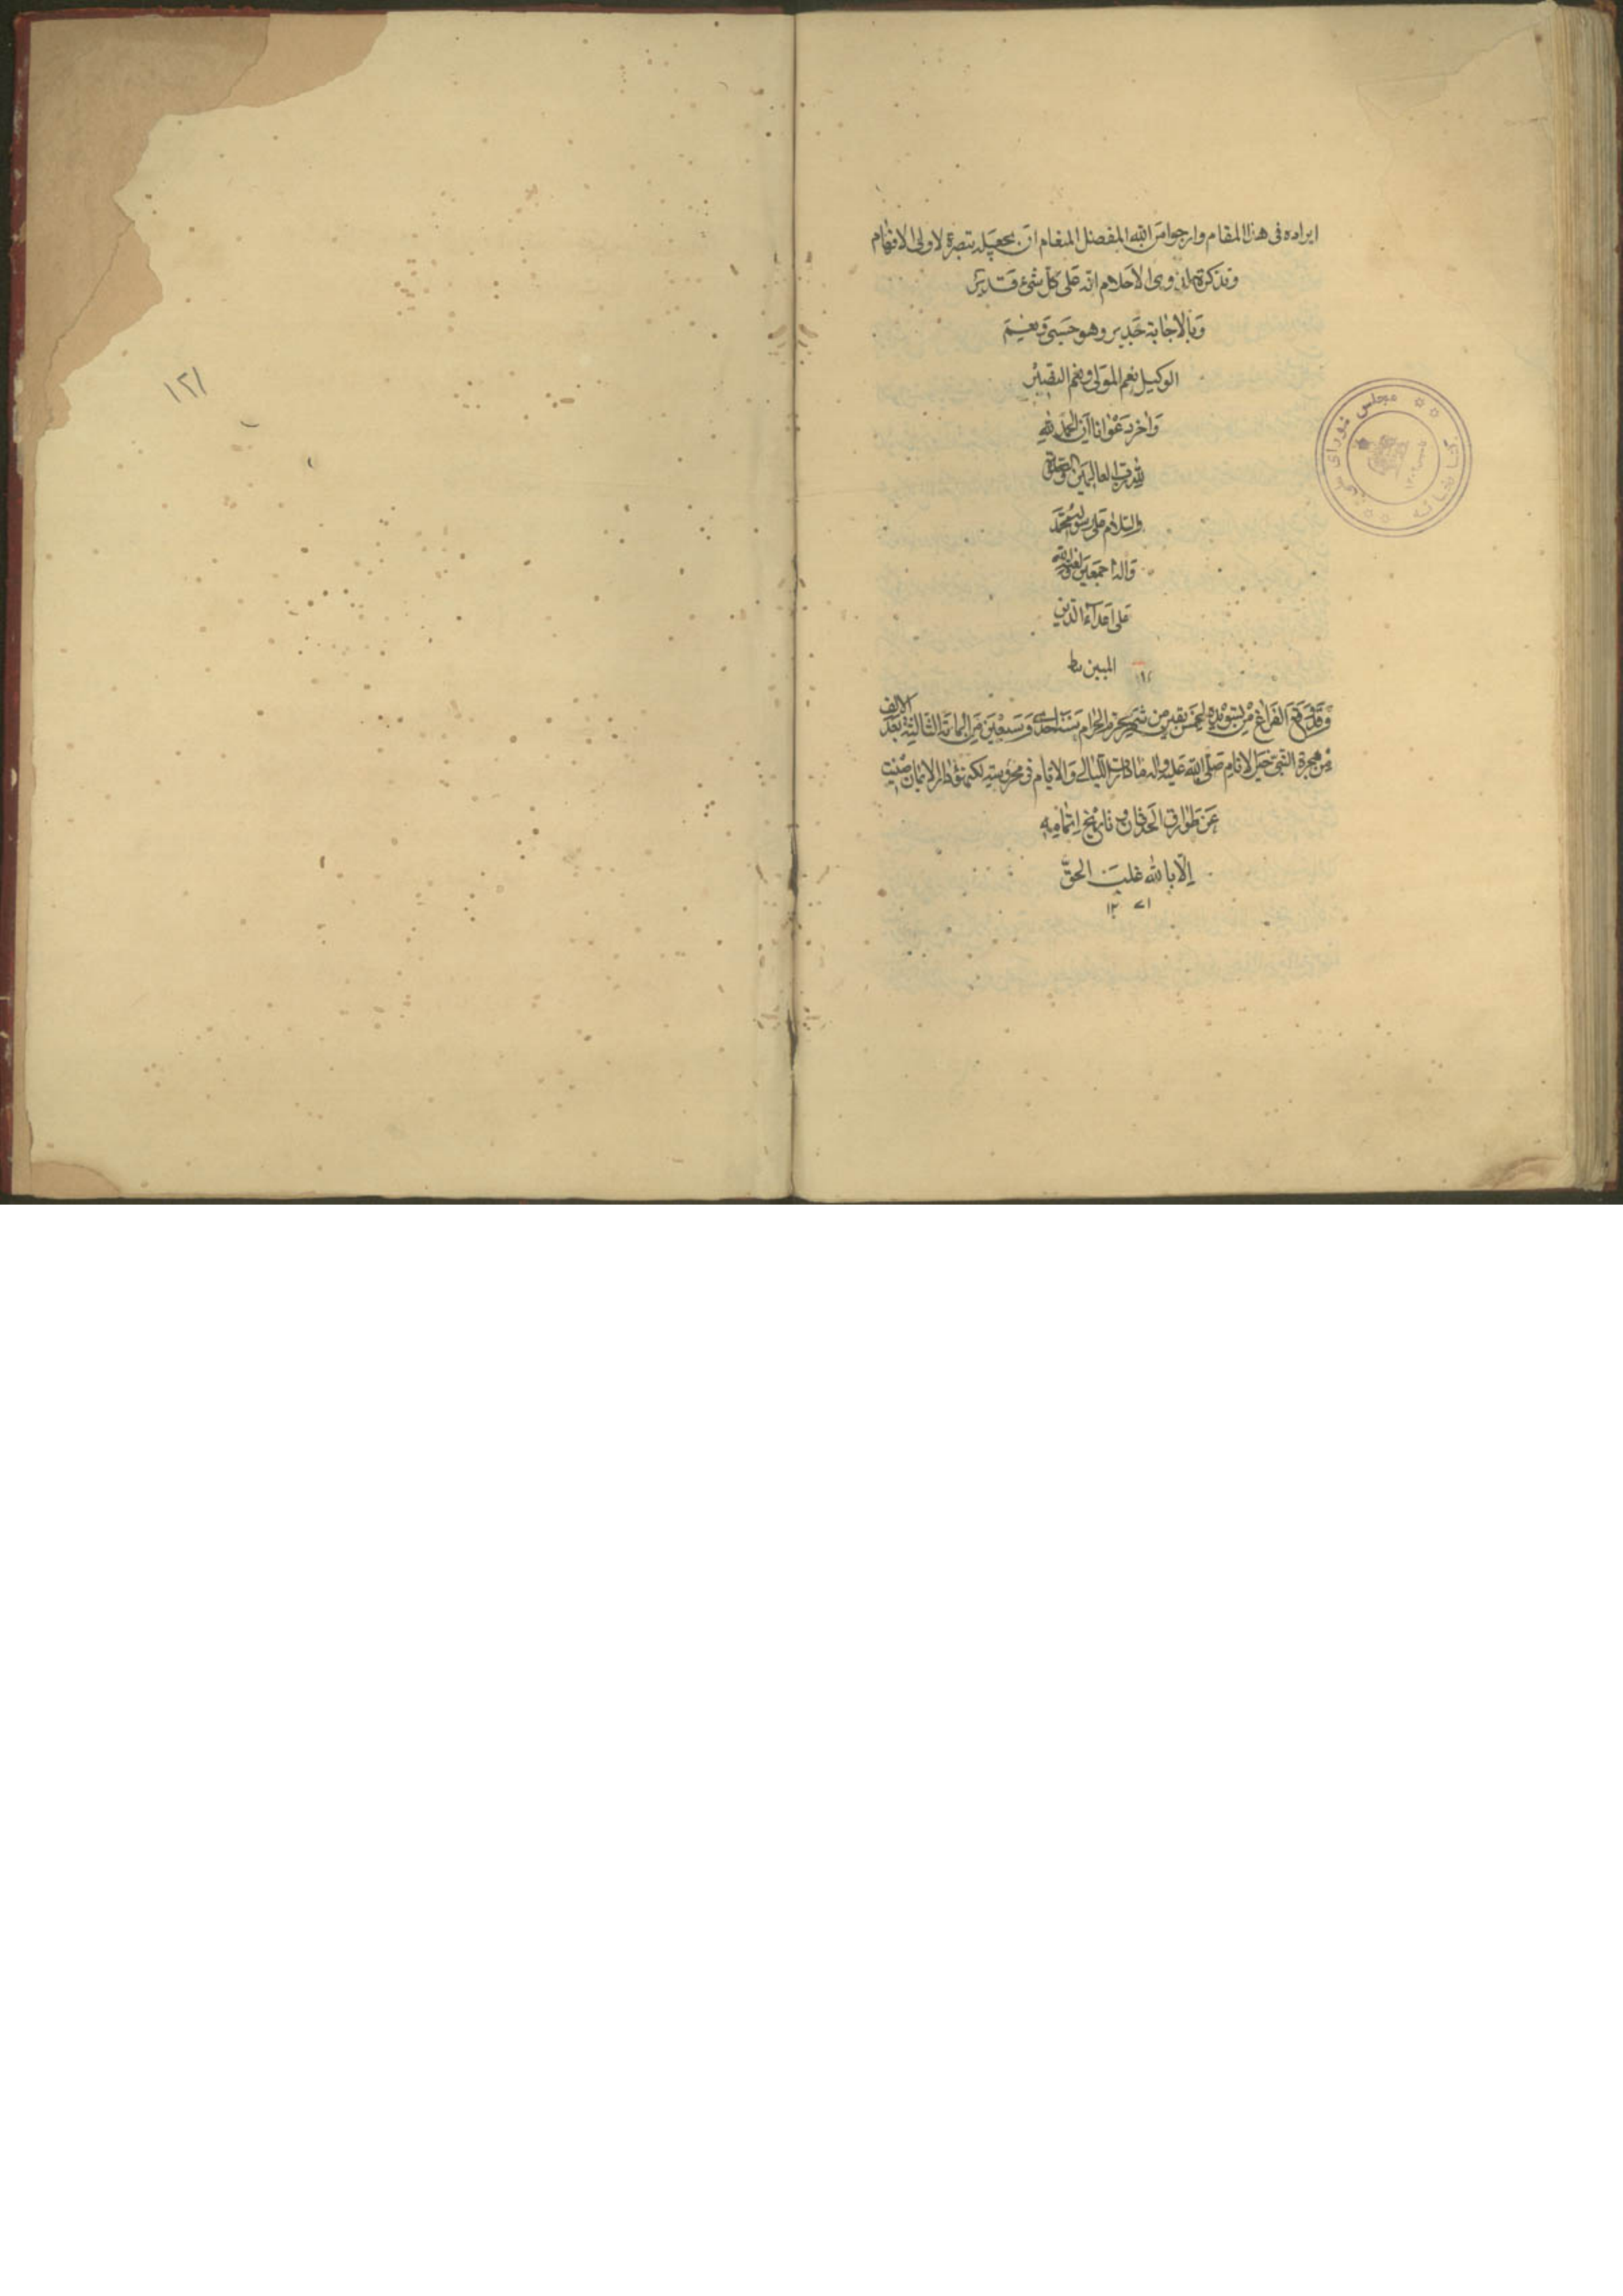 ايراده فى هذا المقام وارجوا من الله المفضل المنعام ان يجعله تبصرة لاولى الافهام
وتذكرة لذوى الاحلام انه على كل شئ قدير
وبالاجابة جدير وهو حسبى ونعيم
الوكيل نعم المولى ونعم النصير
واخر دعوانا ان الحمد لله
لله رب العالمين والصلوة
والسلام على رسوله محمد
واله اجمعين ولعنة الله
على اعداء الدين
المبين
وقد وقع الفراغ من تسويده لخمس بقين من شهر محرم الحرام سنة احدى وسبعين من المائة الثالثة بعد الالف
من هجرة النبى خير الانام صلى الله عليه واله ما دامت الليالى والايام فى محروسة لكهنؤ دار الايمان صينت
عن طوارق الحدثان وتاريخ اتمامه
الا بالله غلبت الحق
١٢٧١
مجلس شورای ملی
کتابخانه
١٢١